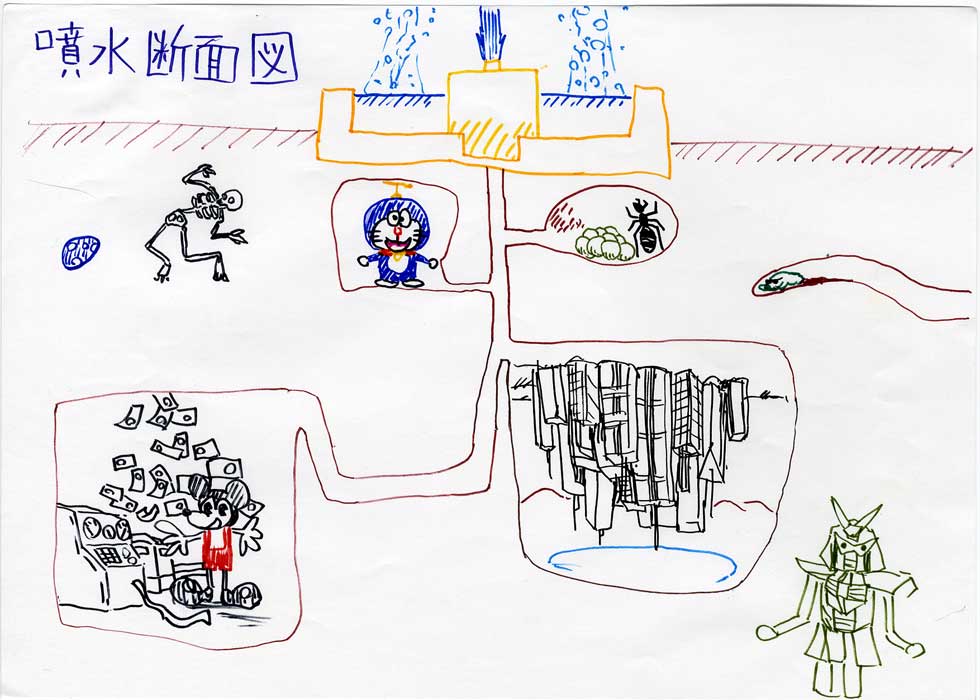 噴水断面図